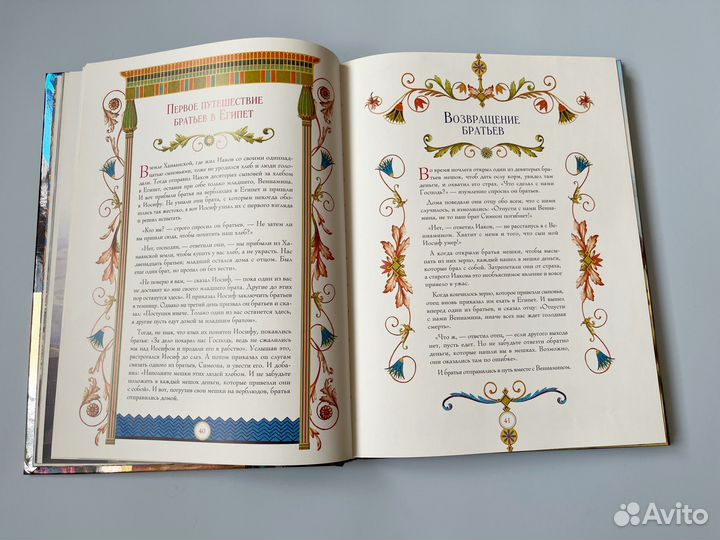 Первое путешествие
братьев в Египет
В земле Ханаанской, где жил Иаков со своими одиннад-
цатью сыновьями, тоже не уродился хлеб и люди голо-
дали. Тогда отправил Иаков десятерых сыновей за хлебом
в Египет, оставив при себе только младшего, Вениамина.
И вот прибыли братья на верблюдах в Египет и пришли
к Иосифу. Не узнали они брата, с которым некогда обо-
шлись так жестоко, а вот Иосиф узнал их с первого взгляда
и решил испытать.
«Кто вы? — строго спросил он братьев. — Не затем ли
вы пришли сюда, чтобы похитить наш хлеб?»
«Нет, господин, — ответили они, — мы прибыли из Ха-
наанской земли, чтобы купить у вас хлеб, а не украсть. Нас
двенадцать братьев; младший остался дома с отцом. Был
еще один брат, но пропал он без вести».
«Не поверю я вам, — сказал Иосиф, — пока один из вас
не доставит ко мне своего младшего брата. Другие до этих
пор останутся здесь». И приказал Иосиф заключить братьев
в темницу. Однако на третий день призвал он братьев и ска-
зал: «Поступим иначе. Только один из вас останется здесь,
а другие пусть едут домой за младшим братом».
Тогда, не зная, что язык их понятен Иосифу, покаялись
братья: «За дело покарал нас Господь, ведь не сжалились
мы над Иосифом и продали его в рабство». Услышав это,
растрогался Иосиф до слез. А потом приказал он слугам
связать одного из братьев, Симеона, и увести его. И доба-
вил: «Наполните мешки этих людей хлебом. И не забудьте
положить в каждый мешок деньги, которые привезли они
с собой». И вот, погрузив свои мешки на верблюдов, братья
отправились домой.
40
Возвращение
братьев
Во время ночлега открыл один из девятерых бра-
тьев мешок, чтобы дать ослу корм, увидел там
деньги, и охватил его страх. «Что сделал с нами
Господь?» — изумленно спросил он братьев.
Дома поведали они отцу обо всем, что с ними
случилось, и взмолились: «Отпусти с нами Вениа-
мина, не то наш брат Симеон погибнет!»
«Нет, — ответил Иаков, — не расстанусь я с Ве-
ниамином. Хватит с меня и того, что сын мой
Иосиф умер!»
А когда открыли братья мешки, чтобы высы-
пать из них зерно, каждый нашел в мешке деньги,
которые брал с собой. Затрепетали они от страха,
а старого Иакова это необъяснимое явление и вовсе
привело в ужас.
Когда кончилось зерно, которое привезли сыновья,
отец вновь приказал им ехать в Египет. И вышел
вперед один из братьев, и сказал отцу: «Отпусти
с нами Вениамина, иначе всех нас ждет голодная
смерть».
«Что ж, — ответил отец, — если другого выхода
нет, пусть едет. Но не забудьте отвезти обратно
деньги, которые нашли вы в мешках. Возможно,
они оказались там по ошибке».
И братья отправились в путь вместе с Вениамином.
41
Avito